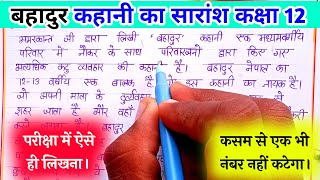 बहादुर कहानी का सारांश कक्षा 12
अमरकान्त जी द्वारा लिखी "बहादुर" कहानी एक मध्यमवर्गीय
परिवार में नौकर के साथ परिवारजनों द्वारा किए गए
अत्यधिक कटु व्यवहार की कहानी है। बहादुर नेपाल का
12-13 वर्षीय एक बालक है इस कहानी का नायक है।
जो अपनी माता के दुर्व्यवहार
शहर जाता है और वहाँ
बहादुर
परीक्षा में ऐसे
ही लिखना।
कसम से एक भी
नंबर नहीं कटेगा।